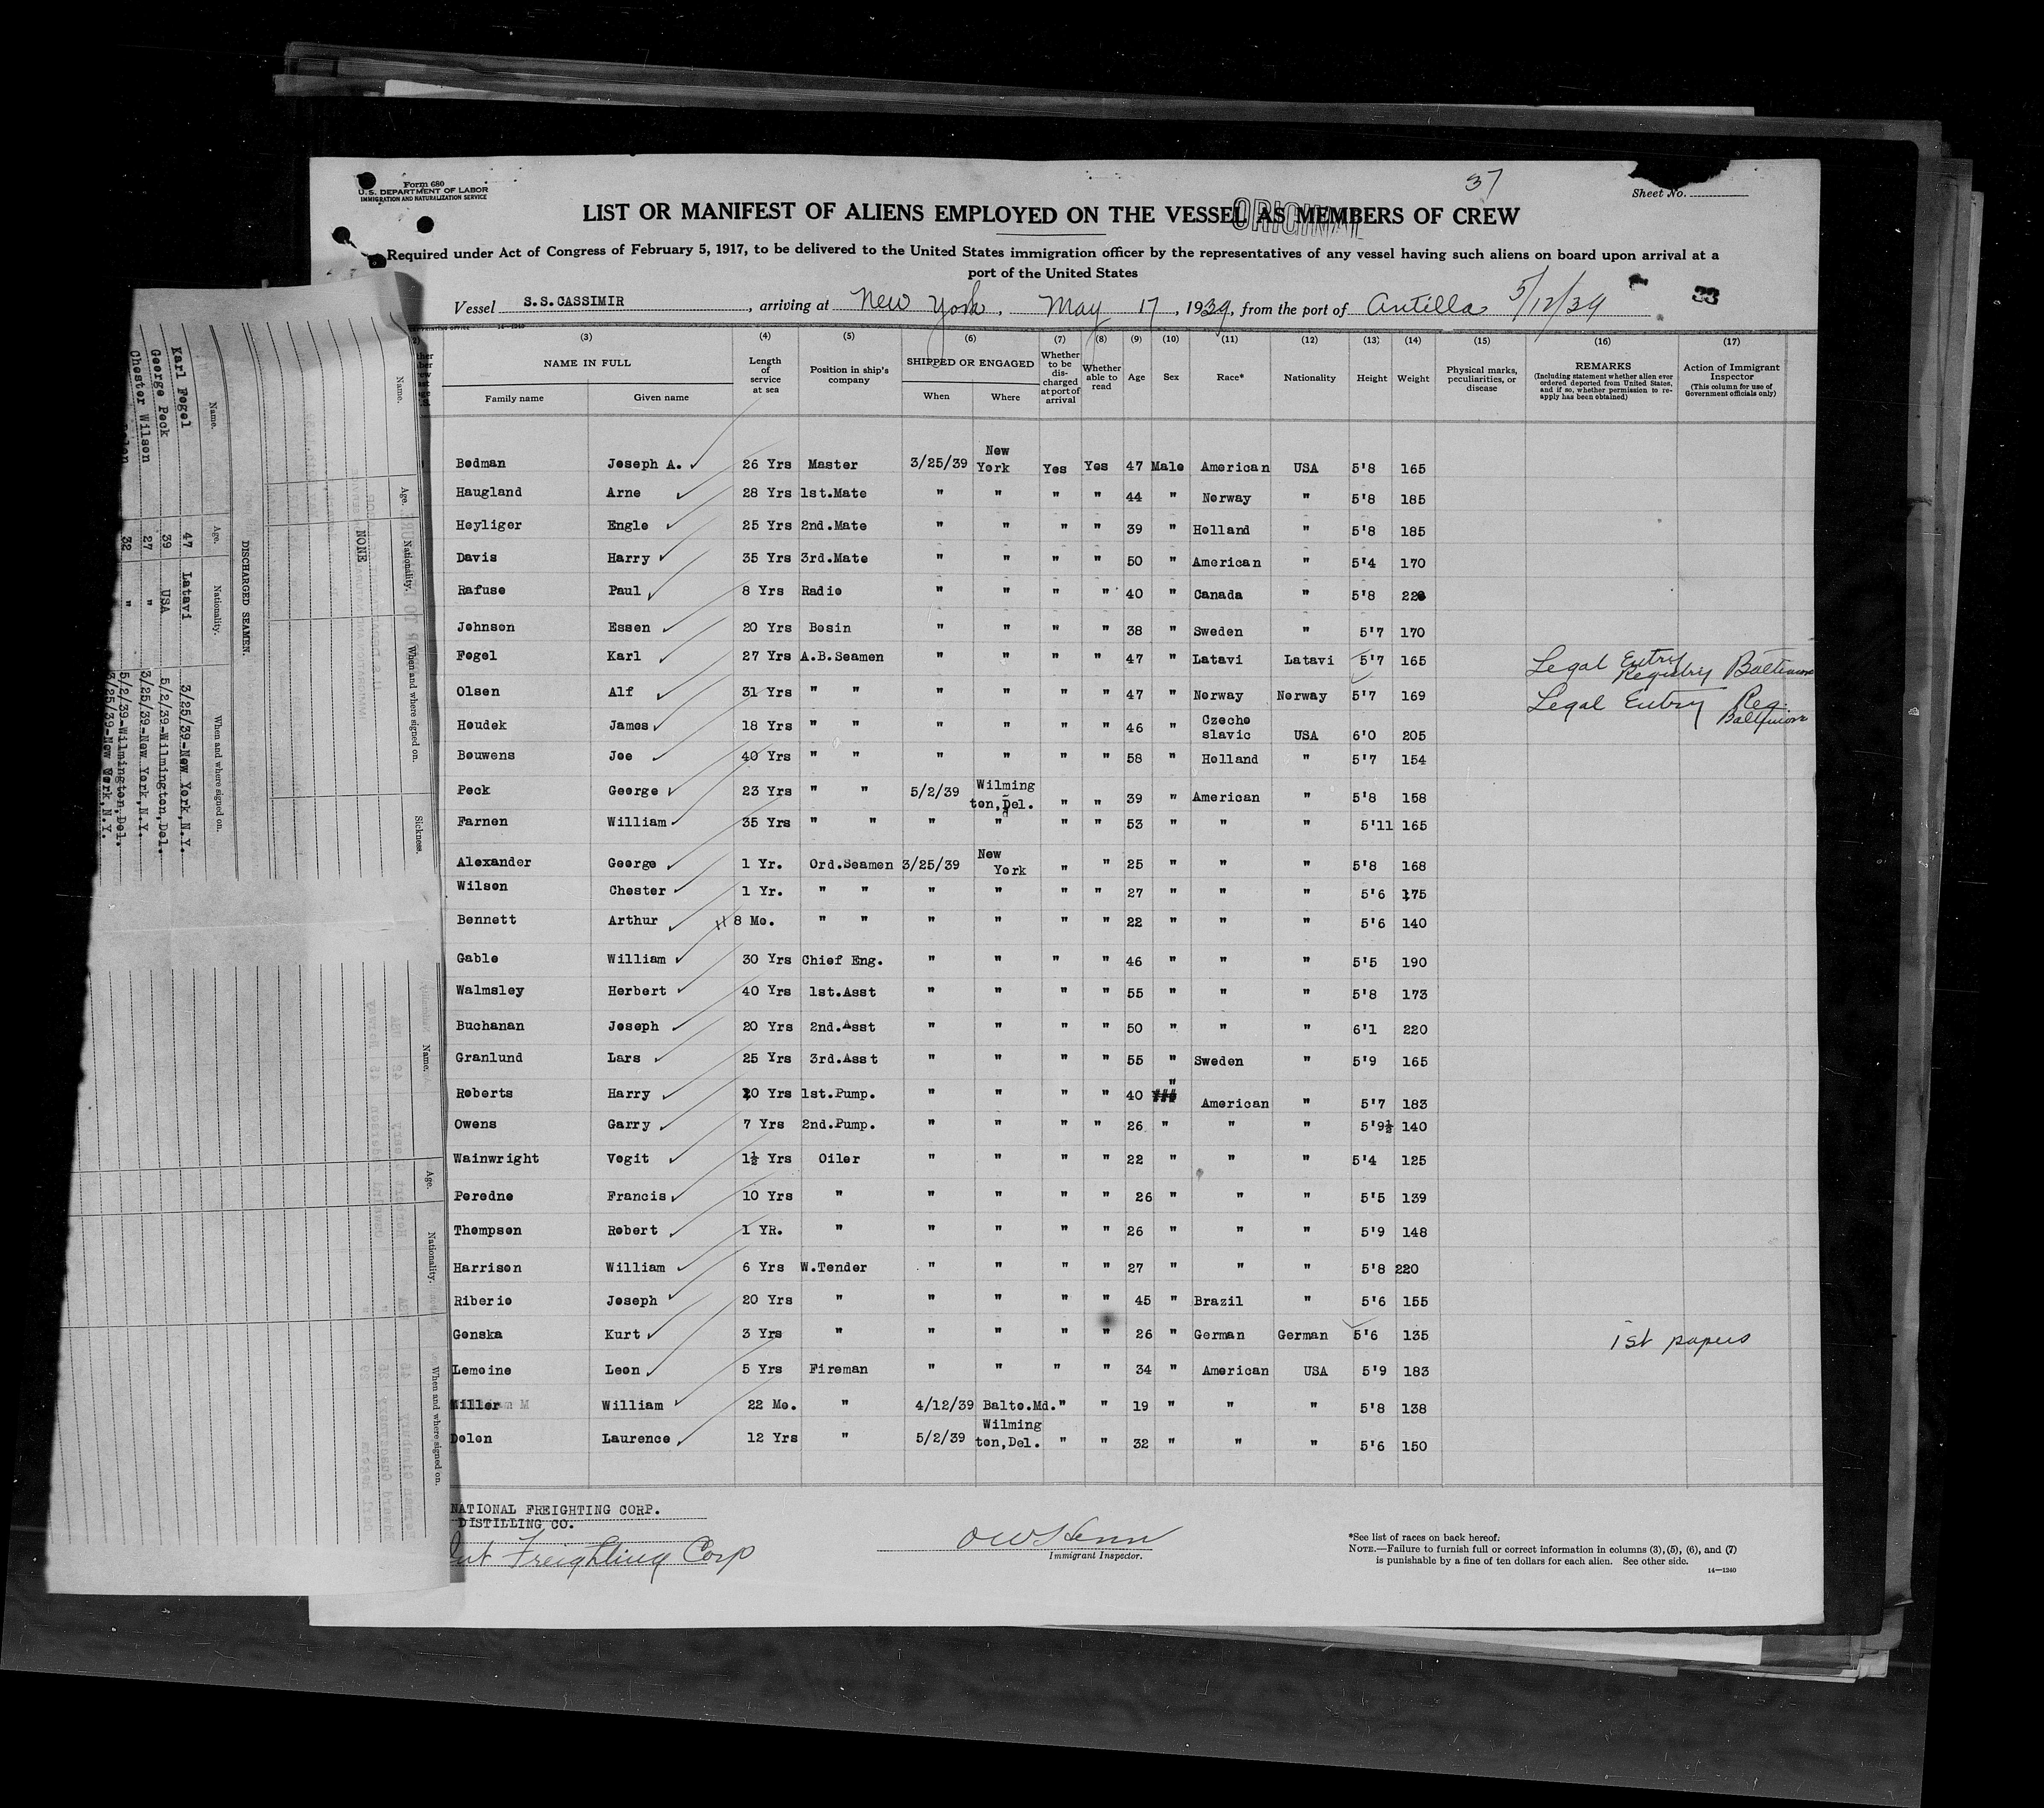 Form 680
U. S. DEPARTMENT OF LABOR
IMMIGRATION AND NATURALIZATION SERVICE
37
Sheet No.
ORIGINAL
LIST OR MANIFEST OF ALIENS EMPLOYED ON THE VESSEL AS MEMBERS OF CREW
Required under Act of Congress of February 5, 1917, to be delivered to the United States immigration officer by the representatives of any vessel having such aliens on board upon arrival at a
port of the United States
Vessel S.S.CASSIMIR, arriving at New York, May 17, 1939, from the port of Antilla 5/12/39
33
14—1240
(3) (4) (5) (6) (7) (8) (9) (10) (11) (12) (13) (14) (15) (16) (17)
NAME IN FULL
Family name Given name
Length of service at sea
Position in ship's company
SHIPPED OR ENGAGED
When Where
Whether to be discharged at port of arrival
Whether able to read
Age Sex Race* Nationality Height Weight
Physical marks, peculiarities, or disease
REMARKS
(Including statement whether alien ever ordered deported from United States, and if so, whether permission to reapply has been obtained)
Action of Immigrant Inspector
(This column for use of Government officials only)
Bodman Joseph A. 26 Yrs Master 3/25/39 New York Yes Yes 47 Male American USA 5'8 165
Haugland Arne 28 Yrs 1st.Mate " " " " 44 " Norway " 5'8 185
Heyliger Engle 25 Yrs 2nd.Mate " " " " 39 " Holland " 5'8 185
Davis Harry 35 Yrs 3rd.Mate " " " " 50 " American " 5'4 170
Rafuse Paul 8 Yrs Radio " " " " 40 " Canada " 5'8
Johnson Essen 20 Yrs Bosin " " " " 38 " Sweden " 5'7 170
Fogel Karl 27 Yrs A.B.Seamen " " " " 47 " Latavi Latavi 5'7 165 Legal Entry Registry Baltimore
Olsen Alf 31 Yrs " " " " " " 47 " Norway Norway 5'7 169 Legal Entry Reg. Baltimore
Houdek James 18 Yrs " " " " " " 46 " Czecho slavic USA 6'0 205
Bouwens Joe 40 Yrs " " " " " " 58 " Holland " 5'7 154
Peck George 23 Yrs " " 5/2/39 Wilming ton,Del. " " 39 " American " 5'8 158
Farnen William 35 Yrs " " " " " " 53 " " " 5'11 165
Alexander George 1 Yr. Ord.Seamen 3/25/39 New York " " 25 " " " 5'8 168
Wilson Chester 1 Yr. " " " " " " 27 " " " 5'6 175
Bennett Arthur 8 Mo. " " " " " " 22 " " " 5'6 140
Gable William 30 Yrs Chief Eng. " " " " 46 " " " 5'5 190
Walmsley Herbert 40 Yrs 1st.Asst " " " " 55 " " " 5'8 173
Buchanan Joseph 20 Yrs 2nd.Asst " " " " 50 " " " 6'1 220
Granlund Lars 25 Yrs 3rd.Asst " " " " 55 " Sweden " 5'9 165
Roberts Harry 20 Yrs 1st.Pump. " " " " 40 " American " 5'7 183
Owens Garry 7 Yrs 2nd.Pump. " " " " 26 " " " 5'9½ 140
Wainwright Vogit 1½ Yrs Oiler " " " " 22 " " " 5'4 125
Peredne Francis 10 Yrs " " " " " 26 " " " 5'5 139
Thompson Robert 1 YR. " " " " " 26 " " " 5'9 148
Harrison William 6 Yrs W.Tender " " " " 27 " " " 5'8 220
Riberio Joseph 20 Yrs " " " " " 45 " Brazil " 5'6 155
Gonska Kurt 3 Yrs " " " " " 26 " German German 5'6 135 1st papers
Lemoine Leon 5 Yrs Fireman " " " " 34 " American USA 5'9 183
Miller William 22 Mo. " 4/12/39 Balto.Md. " " 19 " " " 5'8 138
Dolon Laurence 12 Yrs " 5/2/39 Wilming ton,Del. " " 32 " " " 5'6 150
NATIONAL FREIGHTING CORP.
DISTILLING CO.
Freighting Corp
Immigrant Inspector.
*See list of races on back hereof.
NOTE.—Failure to furnish full or correct information in columns (3), (5), (6), and (7)
is punishable by a fine of ten dollars for each alien. See other side.
14—1240
Name. Age. Nationality. When and where signed on. Sickness.
NONE
DISCHARGED SEAMEN.
Name. Age. Nationality. When and where signed on.
Karl Fogel 47 Latavi 3/25/39-New York,N.Y.
George Peck 39 USA 5/2/39-Wilmington,Del.
Chester Wilson 27 " 3/25/39-New York,N.Y.
32 " 5/2/39-Wilmington,Del.
3/25/39-New York,N.Y.
Name. Age. Nationality. When and where signed on.